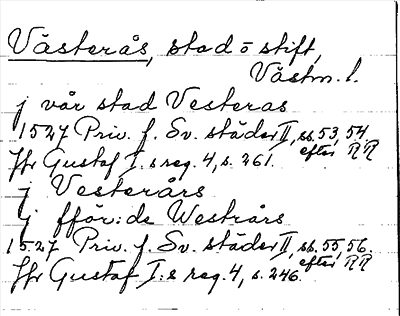 Västerås, stad o stift,
Västm. l.
j vår stad Vesteras
1527 Priv. f. Sv. städer II, ss. 53, 54
efter RR
Jfr Gustaf I:s reg. 4, s. 261.
j Vesterårs
j fför:de Westrårs
1527 Priv. f. Sv. städer II, ss. 55, 56.
efter RR
Jfr Gustaf I:s reg. 4, s. 246.